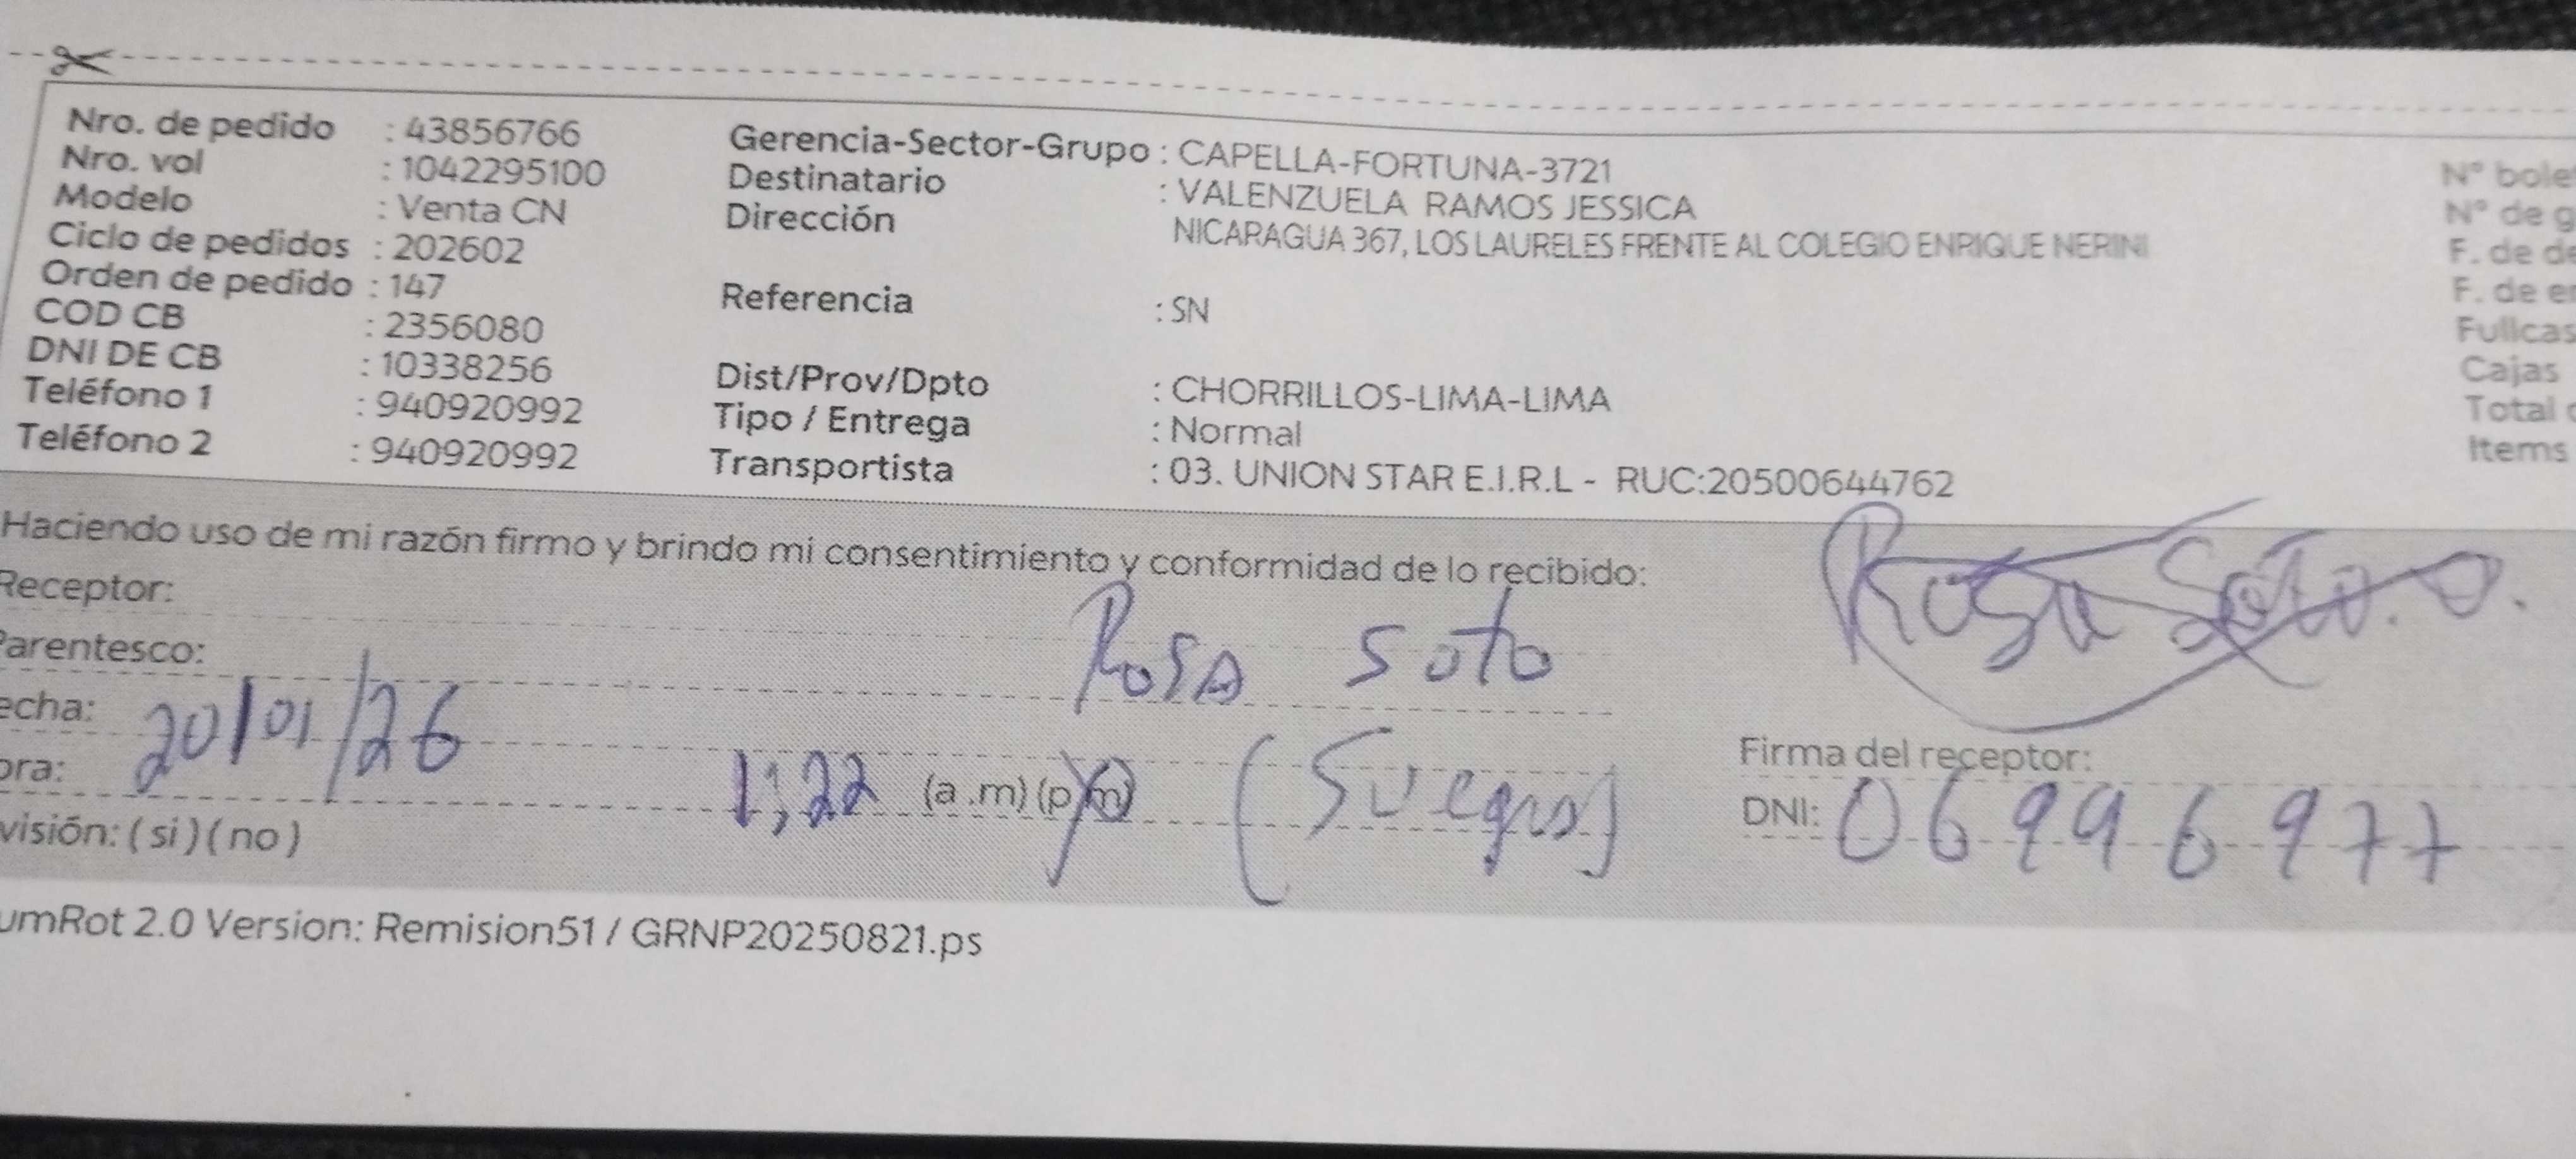 Nro. de pedido : 43856766
Nro. vol : 1042295100
Modelo : Venta CN
Ciclo de pedidos : 202602
Orden de pedido : 147
COD CB : 2356080
DNI DE CB : 10338256
Teléfono 1 : 940920992
Teléfono 2 : 940920992
Gerencia-Sector-Grupo : CAPELLA-FORTUNA-3721
Destinatario : VALENZUELA RAMOS JESSICA
Dirección NICARAGUA 367, LOS LAURELES FRENTE AL COLEGIO ENRIQUE NERINI
Referencia : SN
Dist/Prov/Dpto : CHORRILLOS-LIMA-LIMA
Tipo / Entrega : Normal
Transportista : 03. UNION STAR E.I.R.L - RUC:20500644762
N° bole
N° de g
F. de de
F. de e
Fullcas
Cajas
Total
Items
Haciendo uso de mi razón firmo y brindo mi consentimiento y conformidad de lo recibido:
Receptor: Rosa Soto
Parentesco: (Suegra)
echa: 20/01/26
ora: 1;22 (a .m) (p.m)
visión: ( si ) ( no )
Rosa Soto. O.
Firma del receptor:
DNI: 06996977
umRot 2.0 Version: Remision51 / GRNP20250821.ps